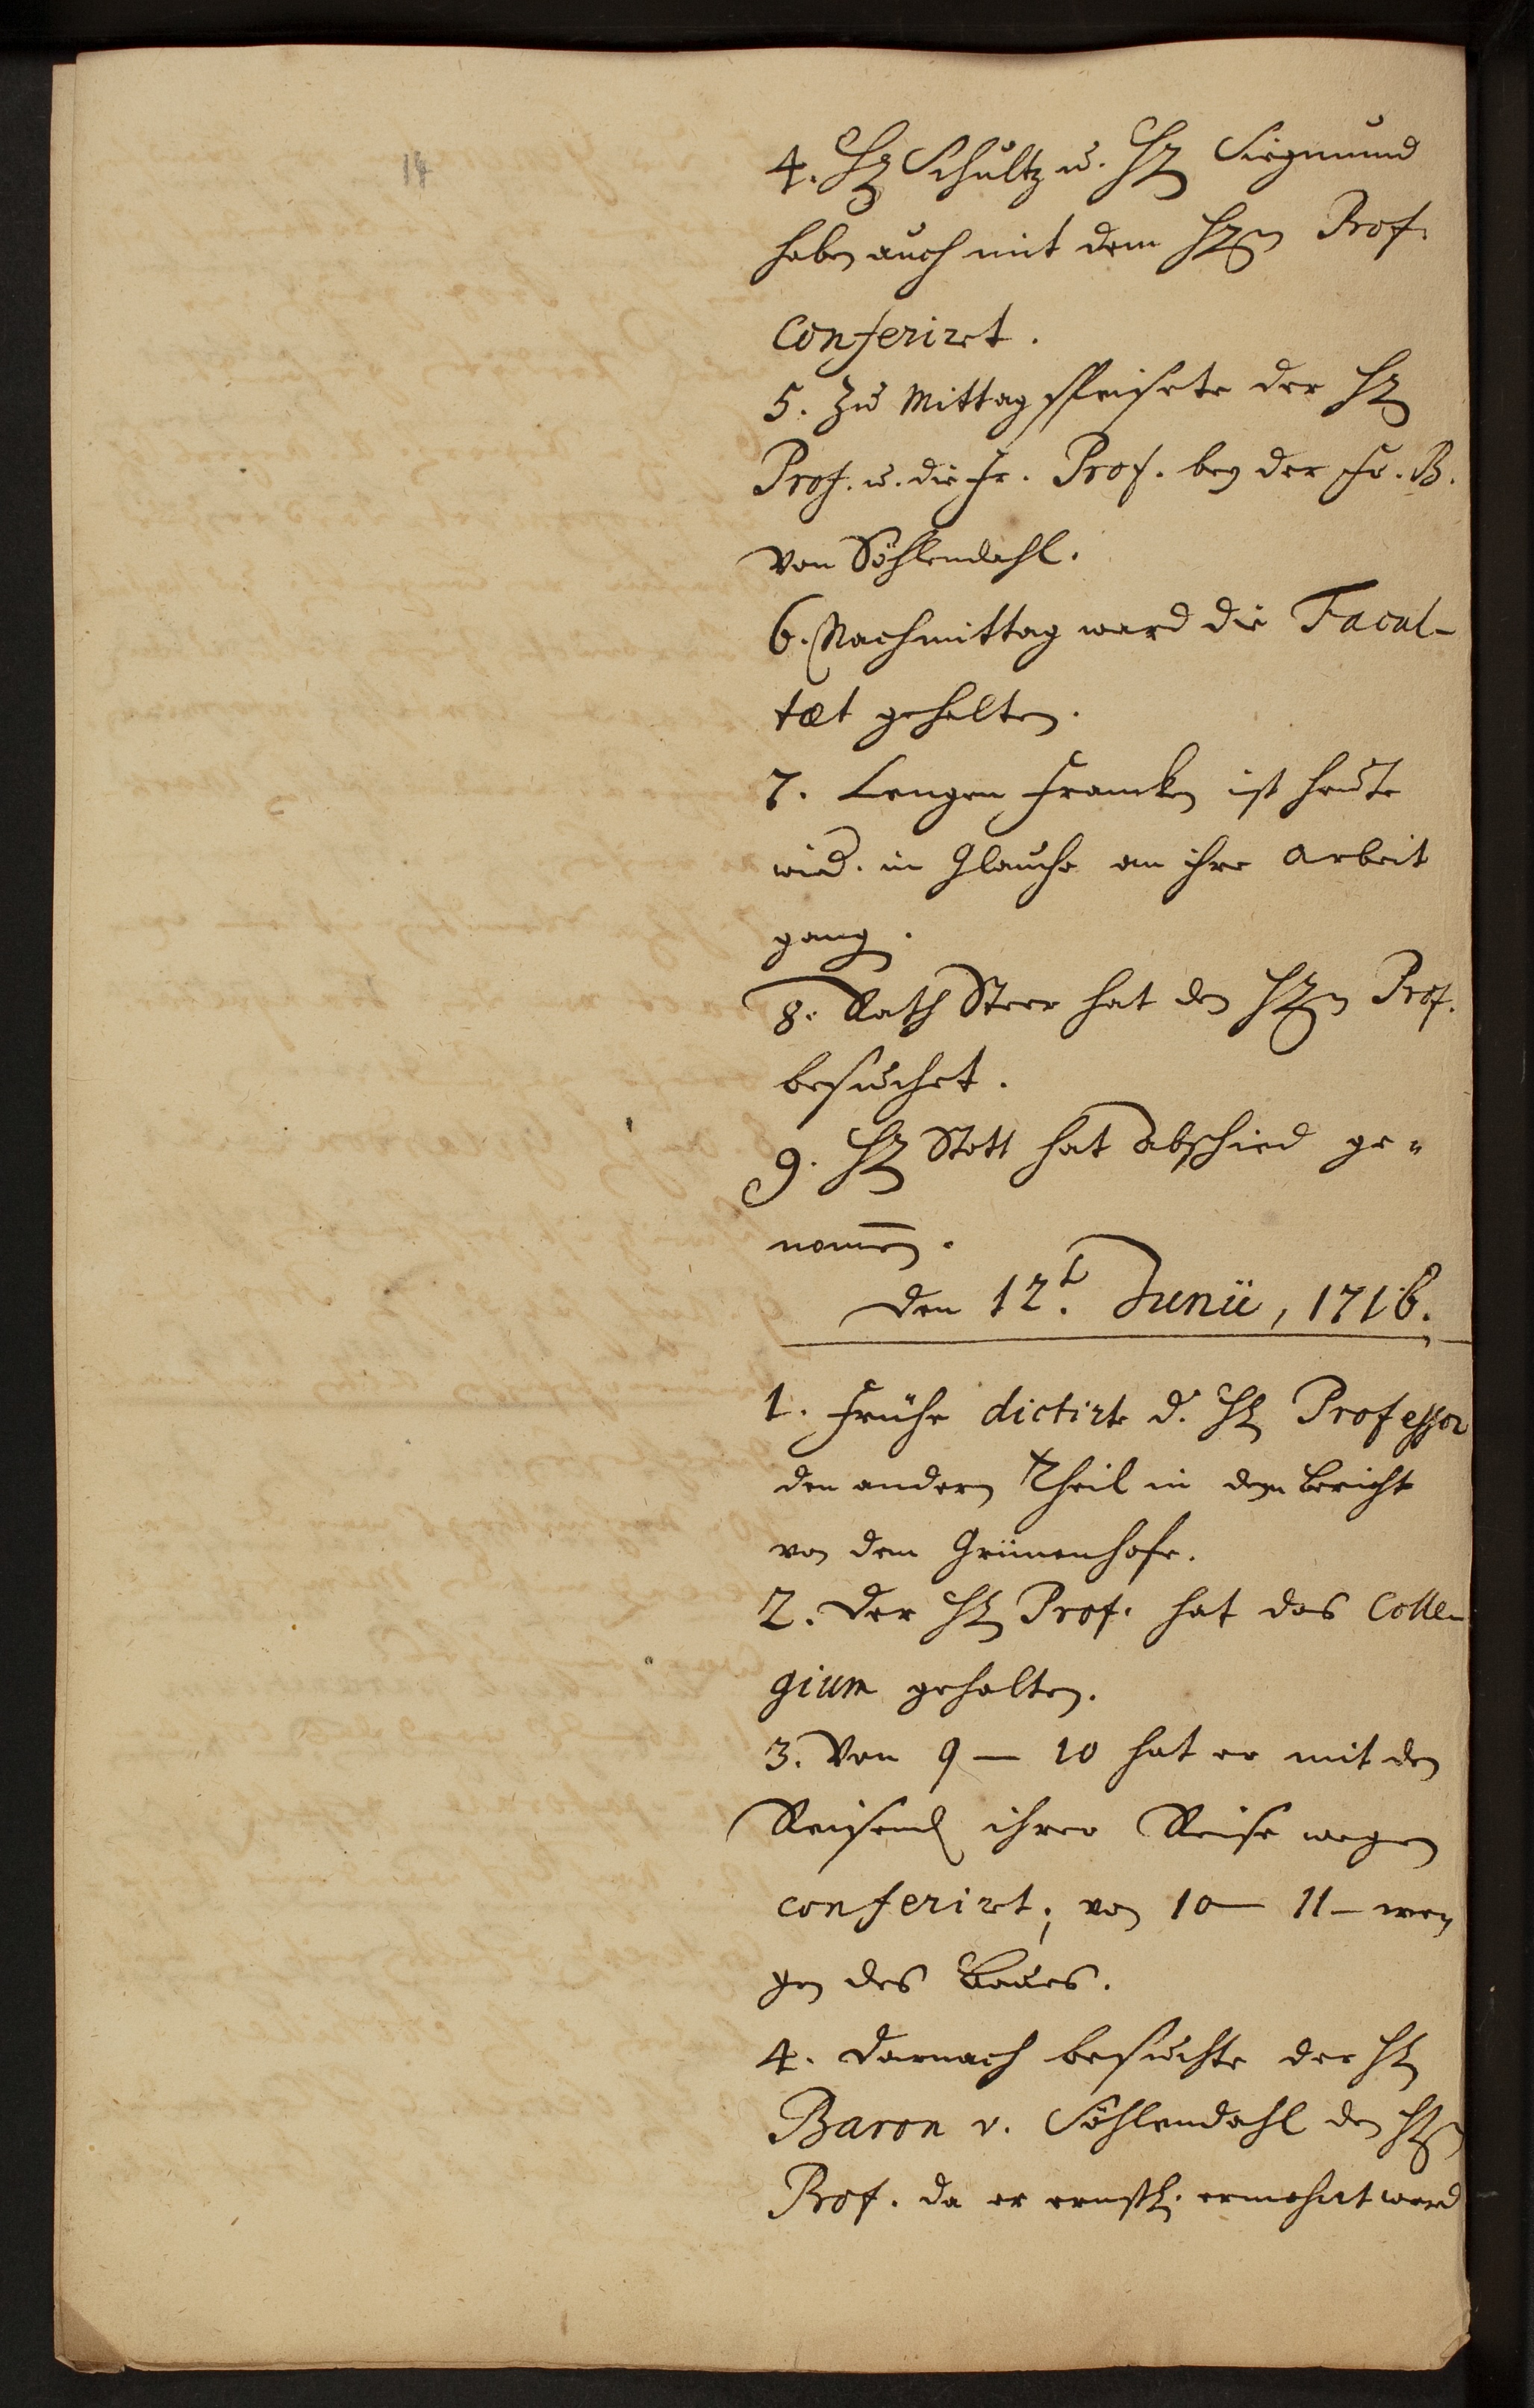 14
4. Hr Schultz u. Hr Siegmund
haben auch mit dem Hrn Prof.
Conferiret.
5. Zu Mittag speisete der Hr
Prof. u. die Fr. Prof. bey der Fr. B.
von Söhlendahl.
6. Nachmittag ward die Facul-
tæt gehalten.
7. Francken ist heute
wied. in Glaucha an ihre Arbeit
gang.
8. Rath Steer hat den Hrn Prof.
besuchet.
9. Hr Stott hat Abschied ge-
nomen.
den 12t. Junii, 1716.
1. Frühe dictirte d. Hr Professor
den andern Theil in dem Bericht
von dem Grünenhofe.
2. Der Hr Prof. hat das Colle-
gium gehalten.
3. Von 9 — 10 hat er mit den
Reisend ihrer Reise wegen
conferirt; von 10 — 11 – we-
gen des Baues.
4. Darnach besuchte der Hr
Baron v. Söhlendahl den Hrn
Prof. da er ernstl. ermahnt ward